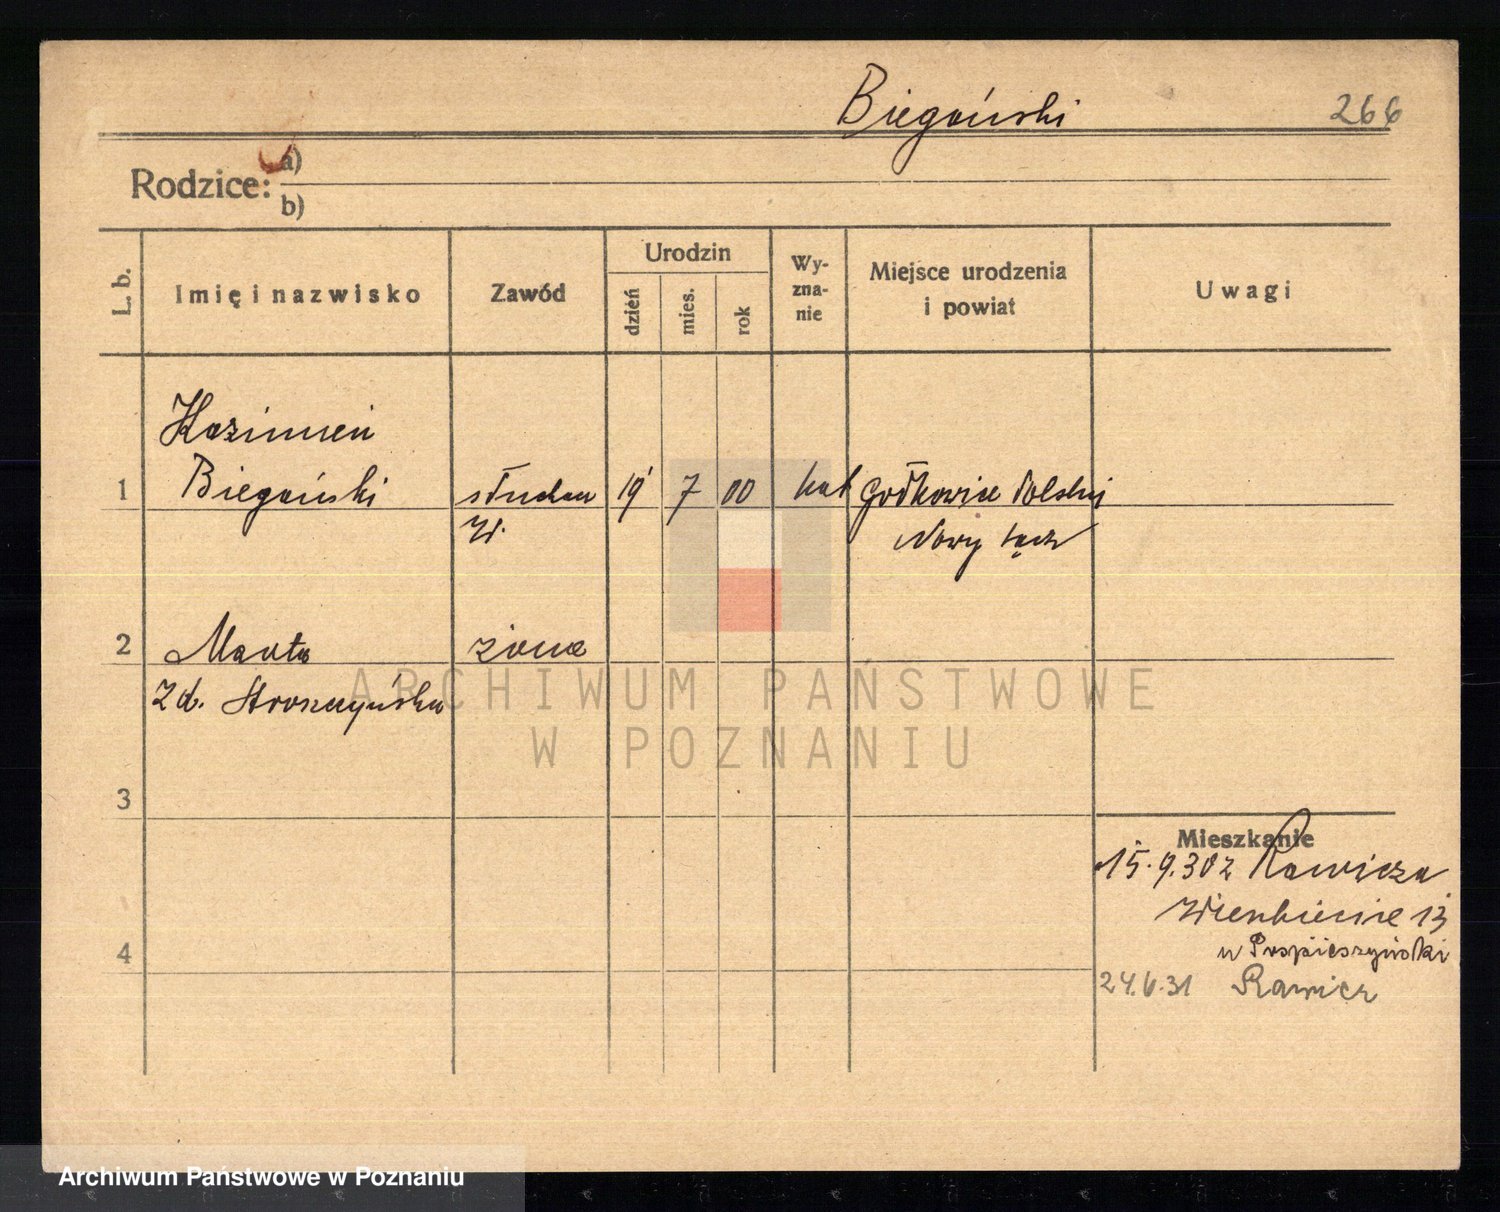 Biegański
266
Rodzice: a)
b)
L. b.
Imię i nazwisko
Zawód
Urodzin
dzień
mies.
rok
Wy-
zna-
nie
Miejsce urodzenia
i powiat
Uwagi
Kazimierz
1 Biegański słuchacz 19 7 00 kat Gołkowice Polskie
W. Nowy Sącz
2 Marta żona
zd. Stroszczyńska
3
4
Mieszkanie
15.9.30 z Rawicza
Wierzbięcice 13
u Pospieszyński
24.6.31 Rawicz
ARCHIWUM PAŃSTWOWE
W POZNANIU
Archiwum Państwowe w Poznaniu